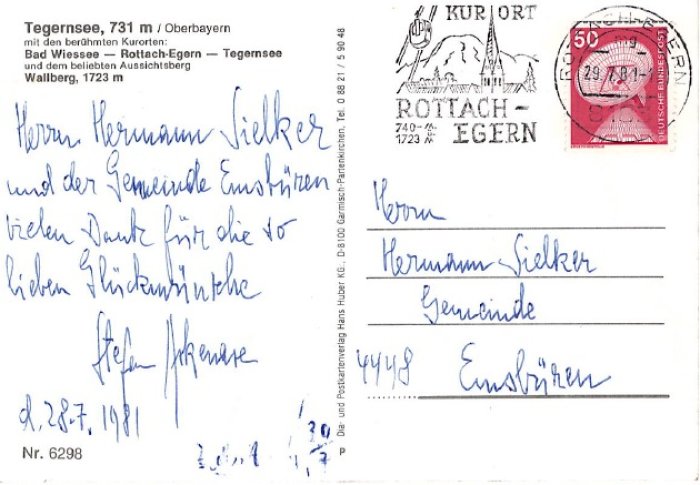 Tegernsee, 731 m / Oberbayern
mit den berühmten Kurorten:
Bad Wiessee — Rottach-Egern — Tegernsee
und dem beliebten Aussichtsberg
Wallberg, 1723 m
Herrn Hermann Sielker
und der Gemeinde Emsbüren
vielen Dank für die so
lieben Glückwünsche
Stefan Askenase
d. 28.7.1981
Nr. 6298
Dia- und Postkartenverlag Hans Huber KG., D-8100 Garmisch-Partenkirchen, Tel. 0 88 21 / 5 90 48
P
KURORT
ROTTACH-
EGERN
740-
1723
ROTTACH-EGERN
29.7.81
50
DEUTSCHE BUNDESPOST
Herrn
Hermann Sielker
Gemeinde
4448 Emsbüren